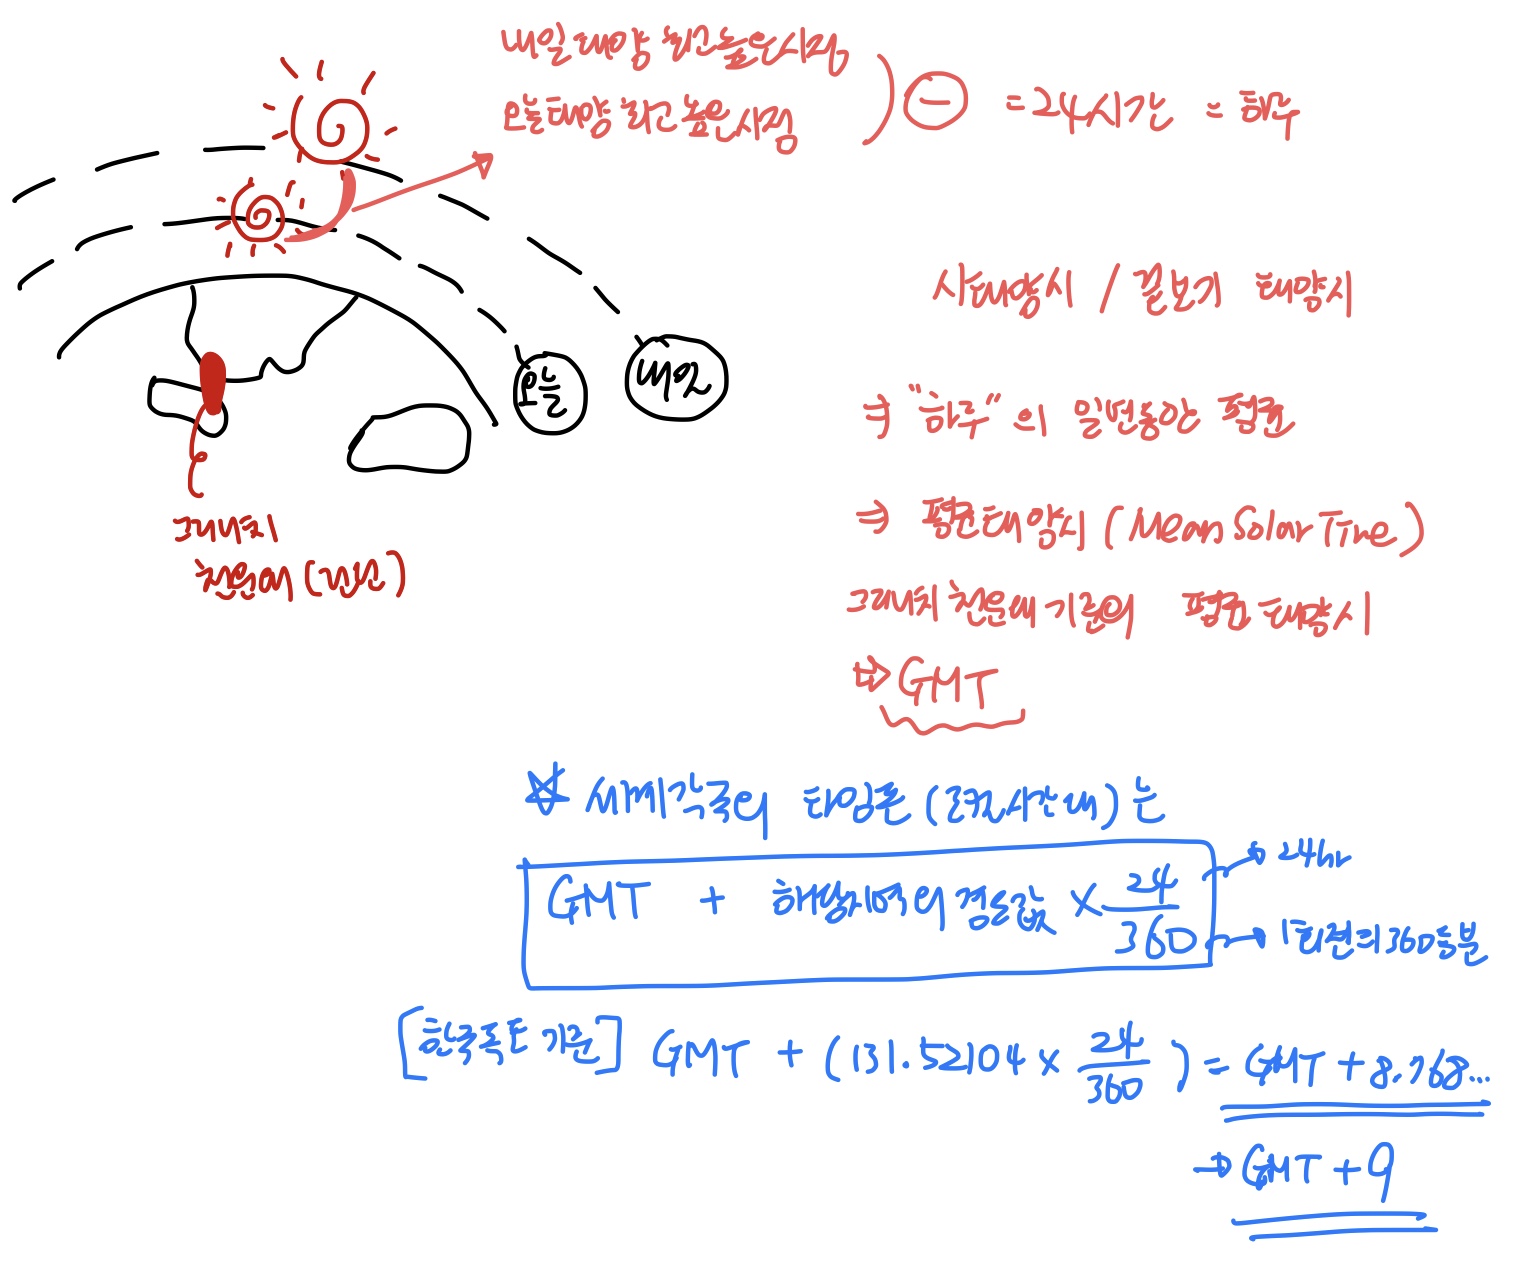 내일 태양 최고 높은 시점
오늘 태양 최고 높은 시점
- = 24시간 = 하루
시태양시 / 겉보기 태양시
⇒ "하루"의 일년동안 평균
⇒ 평균태양시 (Mean Solar Time)
그리니치 천문대 기준의 평균 태양시
⇒ GMT
오늘
내일
그리니치
천문대 (런던)
☆ 세계각국의 타임존 (로컬시간대)는
GMT + 해당지역의 경도값 × 24/360
→ 24hr
→ 1회전의 360등분
[한국독도 기준] GMT + (131.52104 × 24/360) = GMT + 8.768...
→ GMT + 9